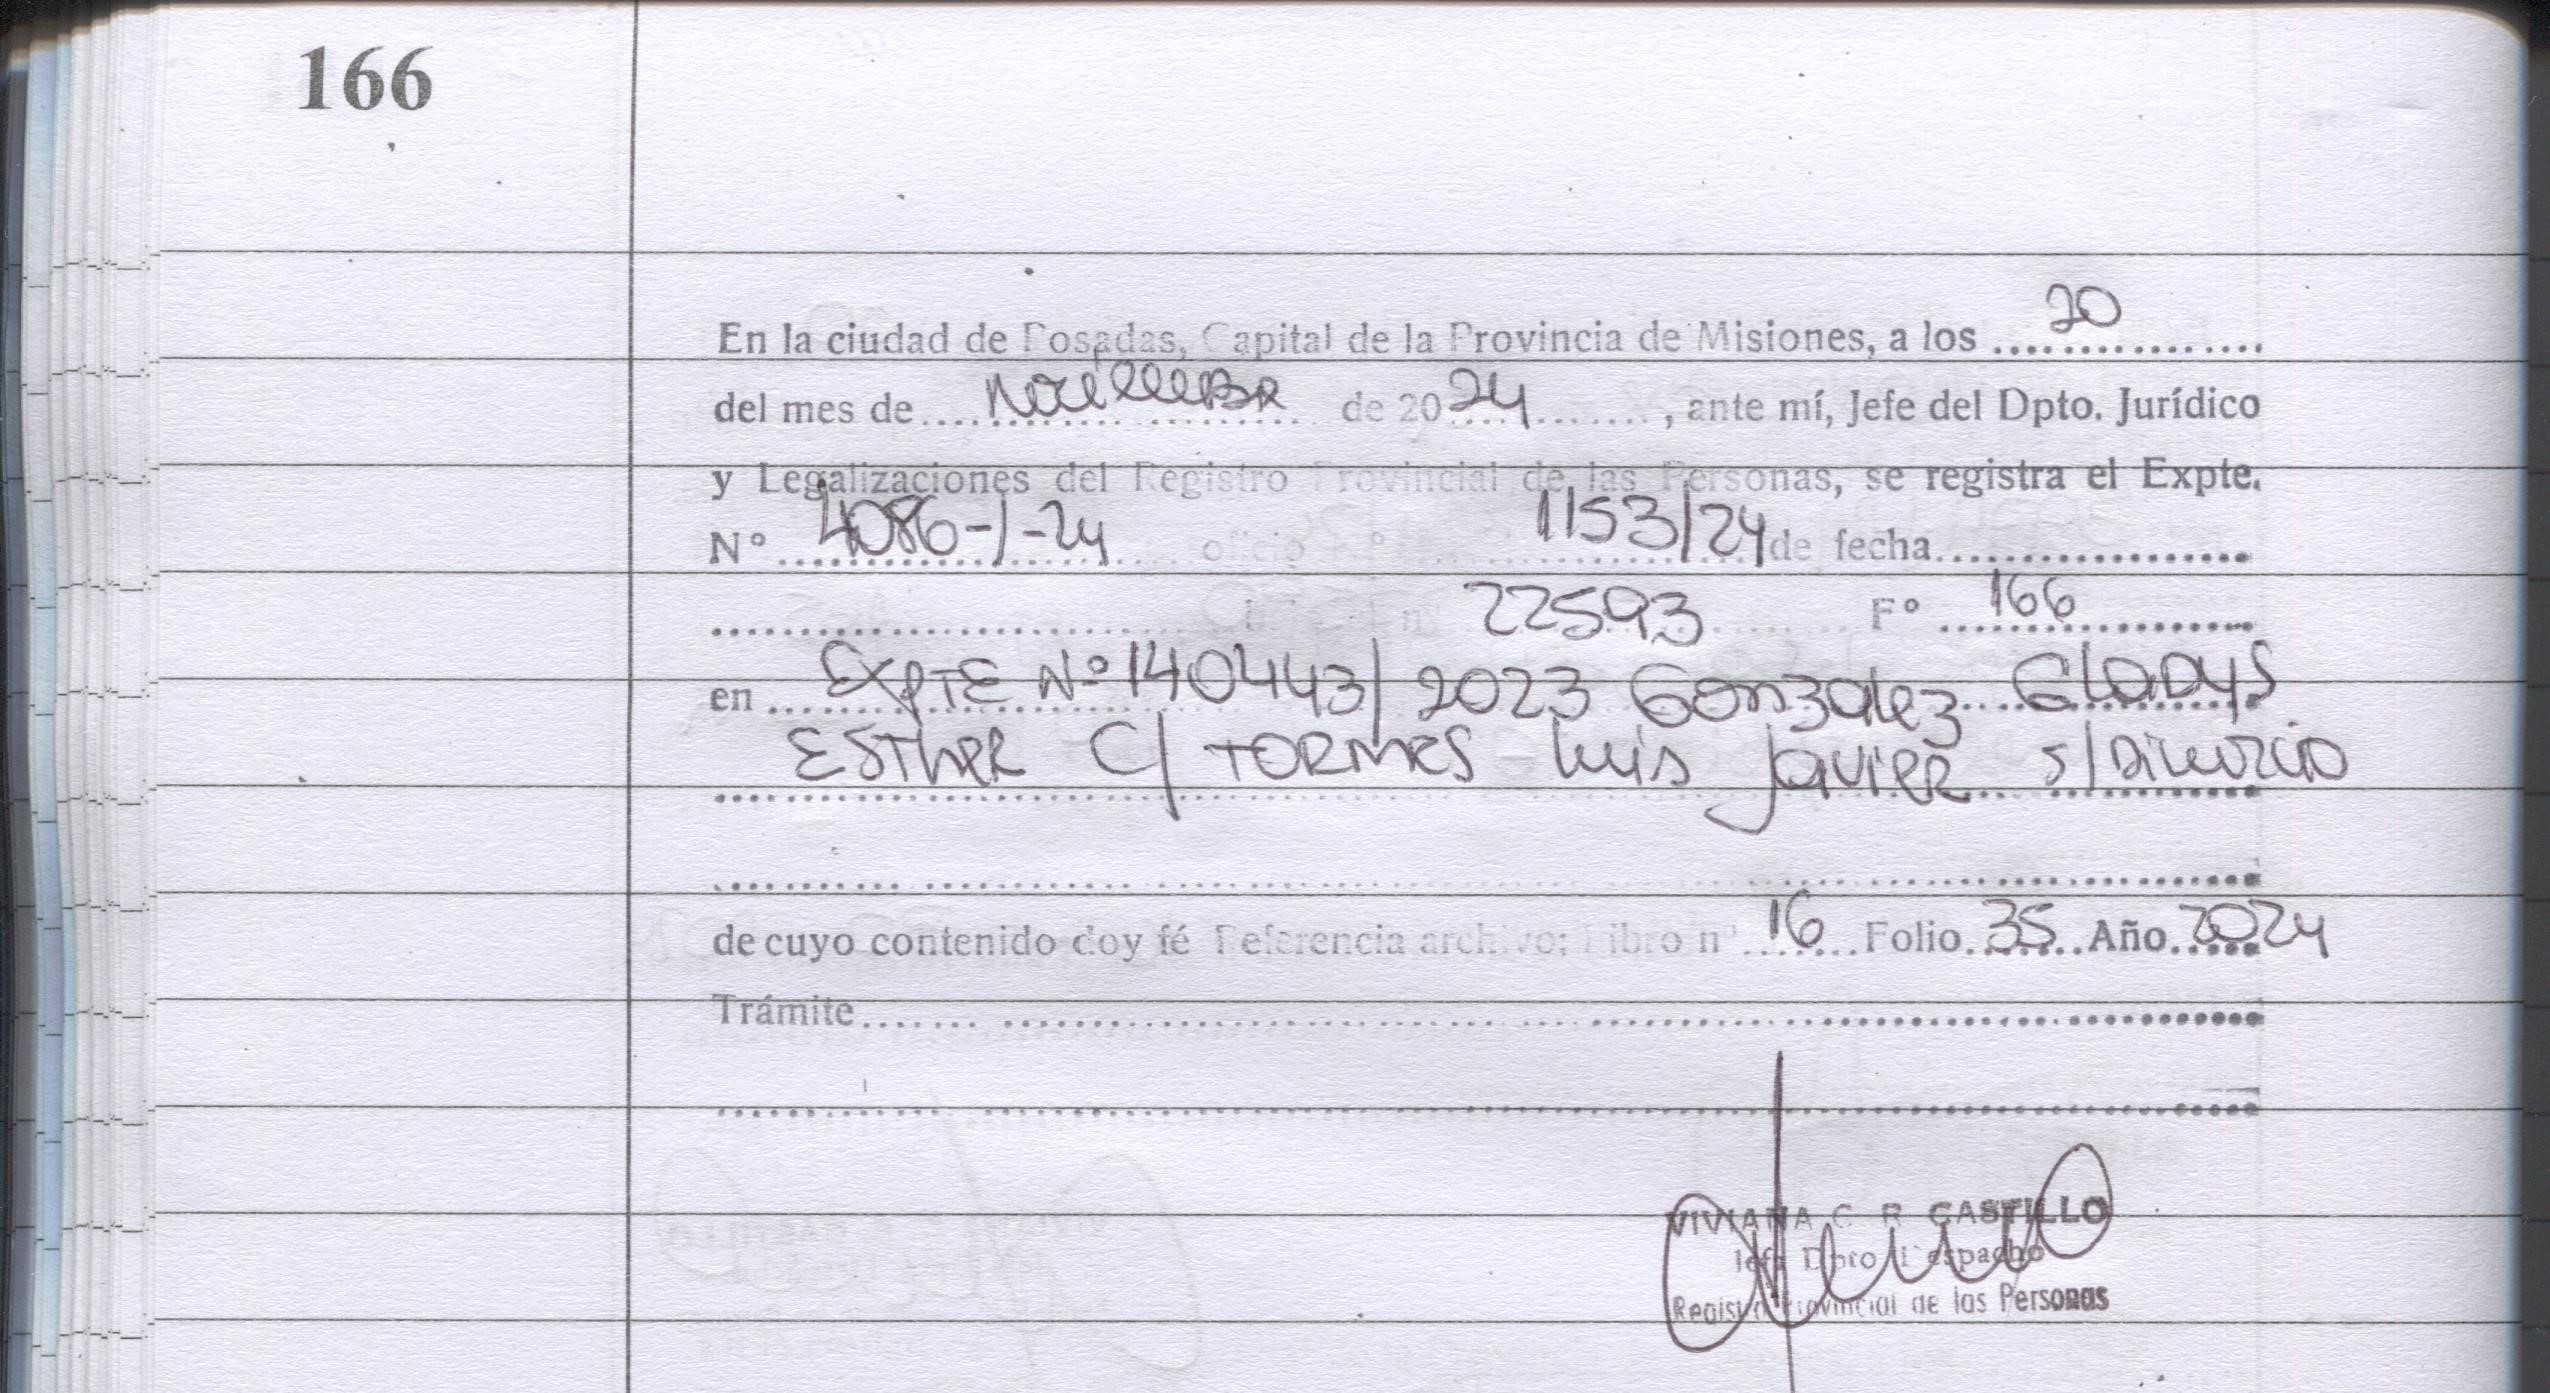 166
En la ciudad de Posadas, Capital de la Provincia de Misiones, a los 20
del mes de Noviembre de 2024, ante mí, Jefe del Dpto. Jurídico
y Legalizaciones del Registro Provincial de las Personas, se registra el Expte.
Nº 4086-/-24 oficio Nº 1153/24 de fecha
22593 Fº 166
en EXPTE Nº 140443/2023 Gonzalez Gladys
ESTHER C/ TORMES Luis Javier S/Divorcio
de cuyo contenido doy fé Referencia archivo; Libro nº 16 Folio 35 Año 2024
Trámite
VIVIANA C R CASTILLO
Jefa Dpto Despacho
Registro Provincial de las Personas